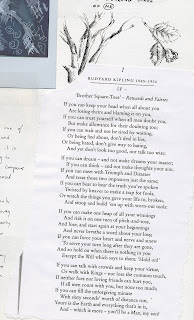 on ME
I
RUDYARD KIPLING 1865-1936
IF –
'Brother Square-Toes' – Rewards and Fairies
If you can keep your head when all about you
Are losing theirs and blaming it on you,
If you can trust yourself when all men doubt you,
But make allowance for their doubting too;
If you can wait and not be tired by waiting,
Or being lied about, don't deal in lies,
Or being hated, don't give way to hating,
And yet don't look too good, nor talk too wise:
If you can dream – and not make dreams your master;
If you can think – and not make thoughts your aim;
If you can meet with Triumph and Disaster
And treat those two impostors just the same;
If you can bear to hear the truth you've spoken
Twisted by knaves to make a trap for fools,
Or watch the things you gave your life to, broken,
And stoop and build 'em up with worn-out tools:
If you can make one heap of all your winnings
And risk it on one turn of pitch-and-toss,
And lose, and start again at your beginnings
And never breathe a word about your loss;
If you can force your heart and nerve and sinew
To serve your turn long after they are gone,
And so hold on when there is nothing in you
Except the Will which says to them: 'Hold on!'
If you can talk with crowds and keep your virtue,
Or walk with Kings – nor lose the common touch,
If neither foes nor loving friends can hurt you,
If all men count with you, but none too much;
If you can fill the unforgiving minute
With sixty seconds' worth of distance run,
Yours is the Earth and everything that's in it,
And – which is more – you'll be a Man, my son!